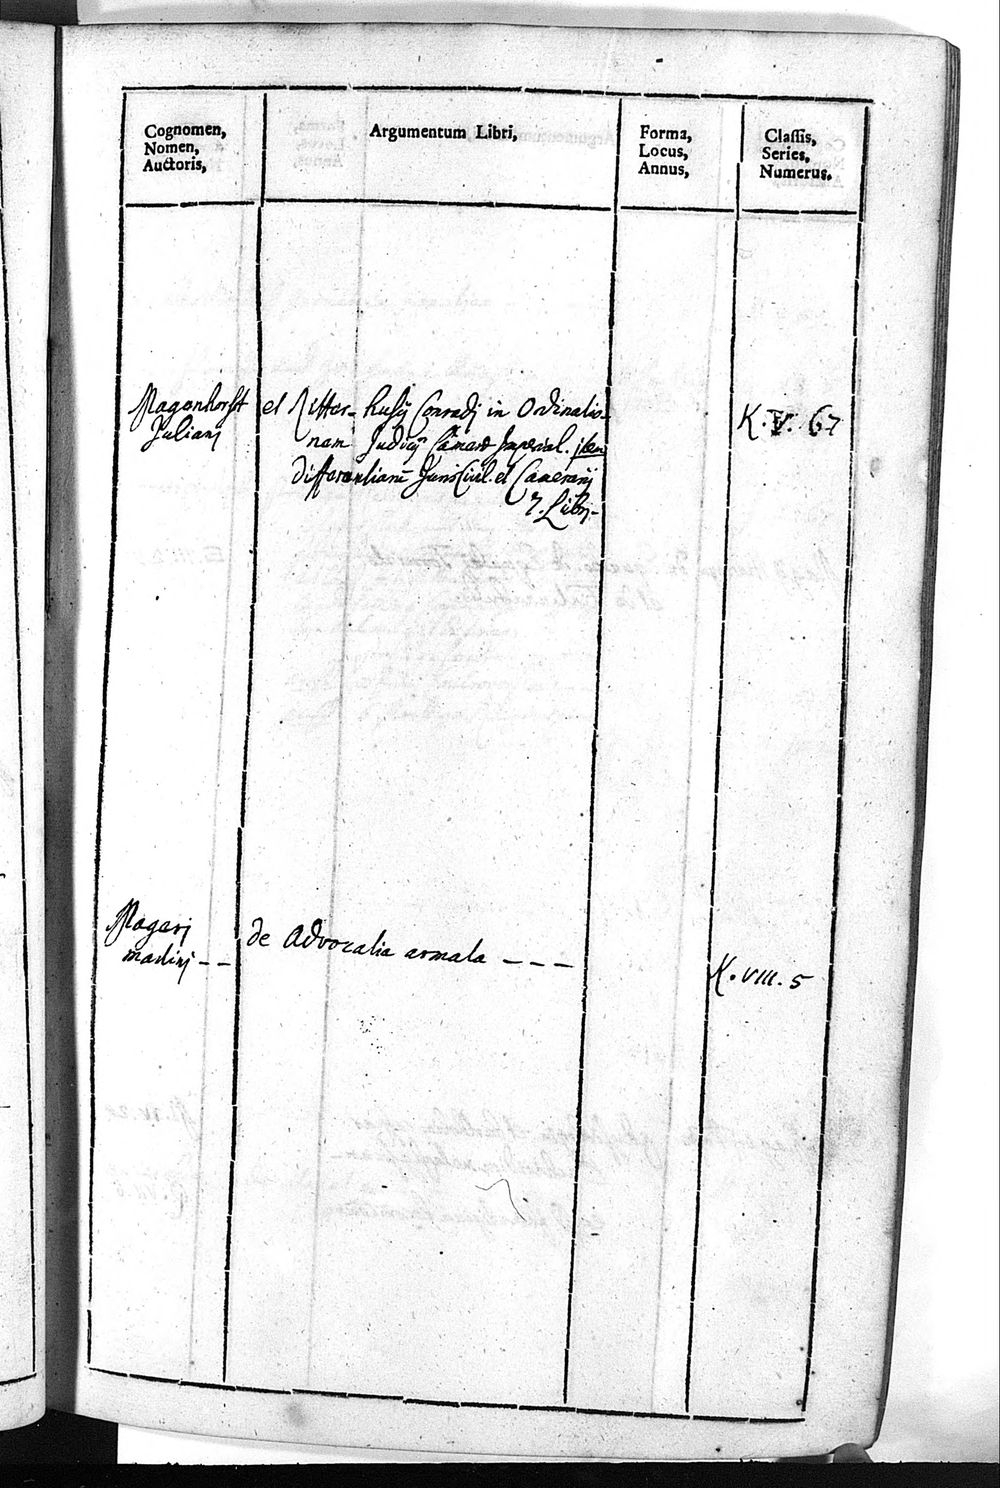 Cognomen,
Nomen,
Auctoris,
Argumentum Libri,
Forma,
Locus,
Annus,
Classis,
Series,
Numerus.
Magenhorst
Juliani
et Ritter-husij Conradj in Ordinatio-
nem Judicij Camerae Imperial. item
differentiarū Juris Civil. et Camerarij
7. Libri-
K. V. 67
Magerj
martinj - -
de Advocatia armata - - -
K. VIII. 5